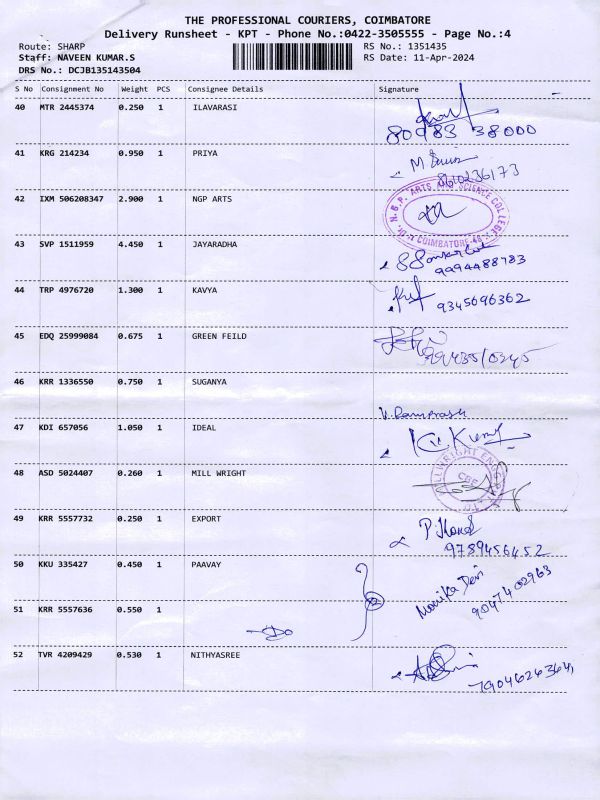 THE PROFESSIONAL COURIERS, COIMBATORE
Delivery Runsheet - KPT - Phone No.:0422-3505555 - Page No.:4
Route: SHARP RS No.: 1351435
Staff: NAVEEN KUMAR.S RS Date: 11-Apr-2024
DRS No.: DCJB135143504
S No Consignment No Weight PCS Consignee Details Signature
40 MTR 2445374 0.250 1 ILAVARASI
80983 38000
41 KRG 214234 0.950 1 PRIYA
8610236173
42 IXM 506208347 2.900 1 NGP ARTS
Dr. N.G.P. ARTS AND SCIENCE COLLEGE
COIMBATORE-48
43 SVP 1511959 4.450 1 JAYARADHA
9994488783
44 TRP 4976720 1.300 1 KAVYA
9345696362
45 EDQ 25999084 0.675 1 GREEN FEILD
46 KRR 1336550 0.750 1 SUGANYA
V. Ramprash
47 KDI 657056 1.050 1 IDEAL
48 ASD 5024407 0.260 1 MILL WRIGHT
CBE
49 KRR 5557732 0.250 1 EXPORT
9789456452
50 KKU 335427 0.450 1 PAAVAY
Monika Devi
9047402963
51 KRR 5557636 0.550 1
Do
52 TVR 4209429 0.530 1 NITHYASREE